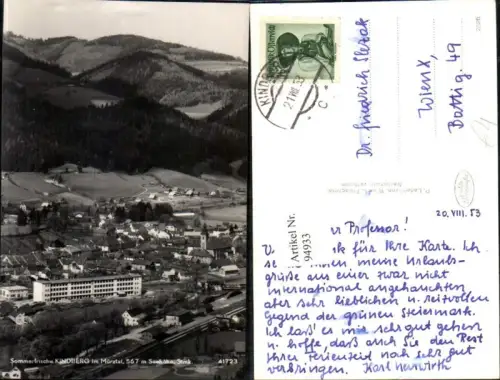 Sommerfrische KINDBERG im Mürztal, 567 m Seehöhe, Stmk
A1723
KINDBERG
21.VIII.53
c
Dr. Friedrich Slezak
Wien X,
Battig. 49
20.VIII.53
Artikel Nr.
94933
r Professor!
V k für Ihre Karte. Ich
se meine Urlaubs-
grüße aus einer zwar nicht
international angehauchten
aber sehr lieblichen u. reizvollen
Gegend der grünen Steiermark.
Ich laß' es mir sehr gut gehen
u. hoffe, daß auch Sie den Rest
Ihrer Ferienzeit noch sehr gut
verbringen. Karl